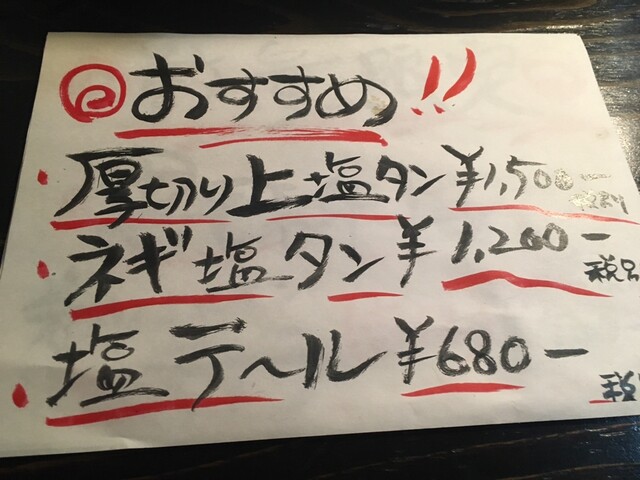 おすすめ!!
・厚切り上塩タン ¥1,500ー
・ネギ塩タン ¥1,260ー
・塩テ〜ル ¥680ー 税